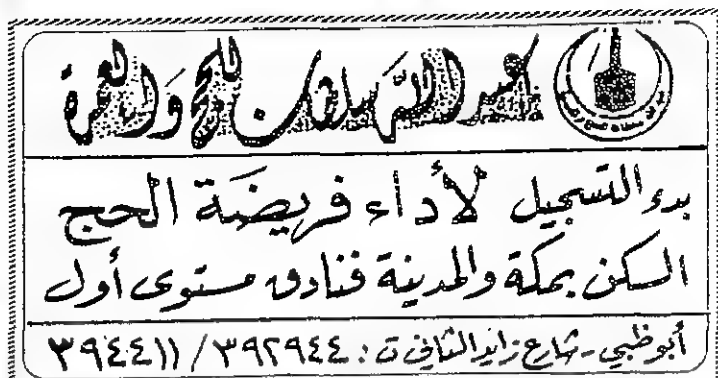 عبد الله للحج والعمرة
بدء التسجيل لأداء فريضة الحج
السكن بمكة والمدينة فنادق مستوى أول
أبوظبي - شارع زايد الثاني ت : ٣٩٢٩٤٤ / ٣٩٤٤١١